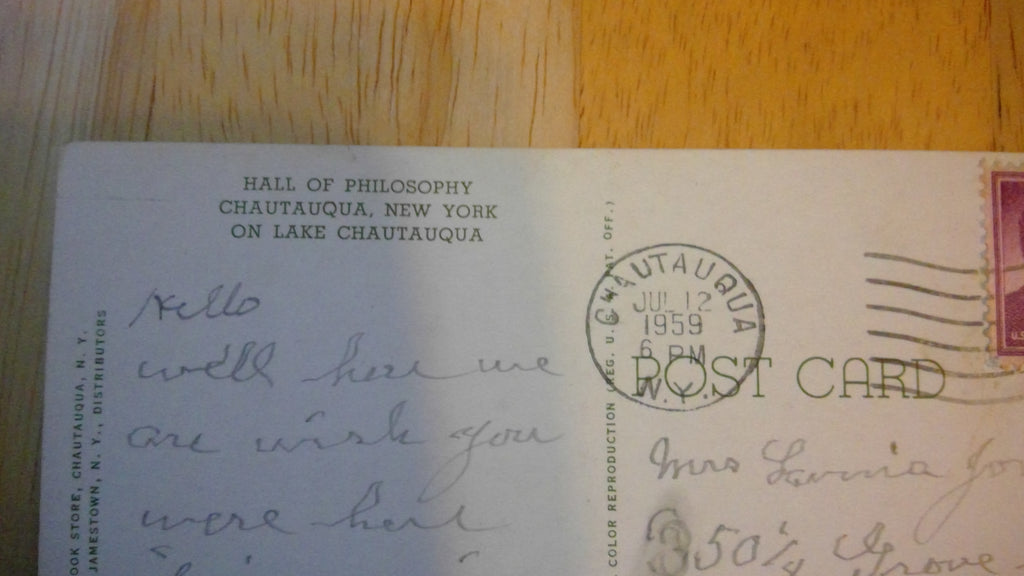 HALL OF PHILOSOPHY
CHAUTAUQUA, NEW YORK
ON LAKE CHAUTAUQUA
Hello
well here we
are wish you
were here
OOK STORE, CHAUTAUQUA, N. Y.
JAMESTOWN, N. Y., DISTRIBUTORS
COLOR REPRODUCTION (REG. U. S. PAT. OFF.)
CHAUTAUQUA
JUL 12
1959
6 PM
N.Y.
POST CARD
Mrs
350 1/4 Grove